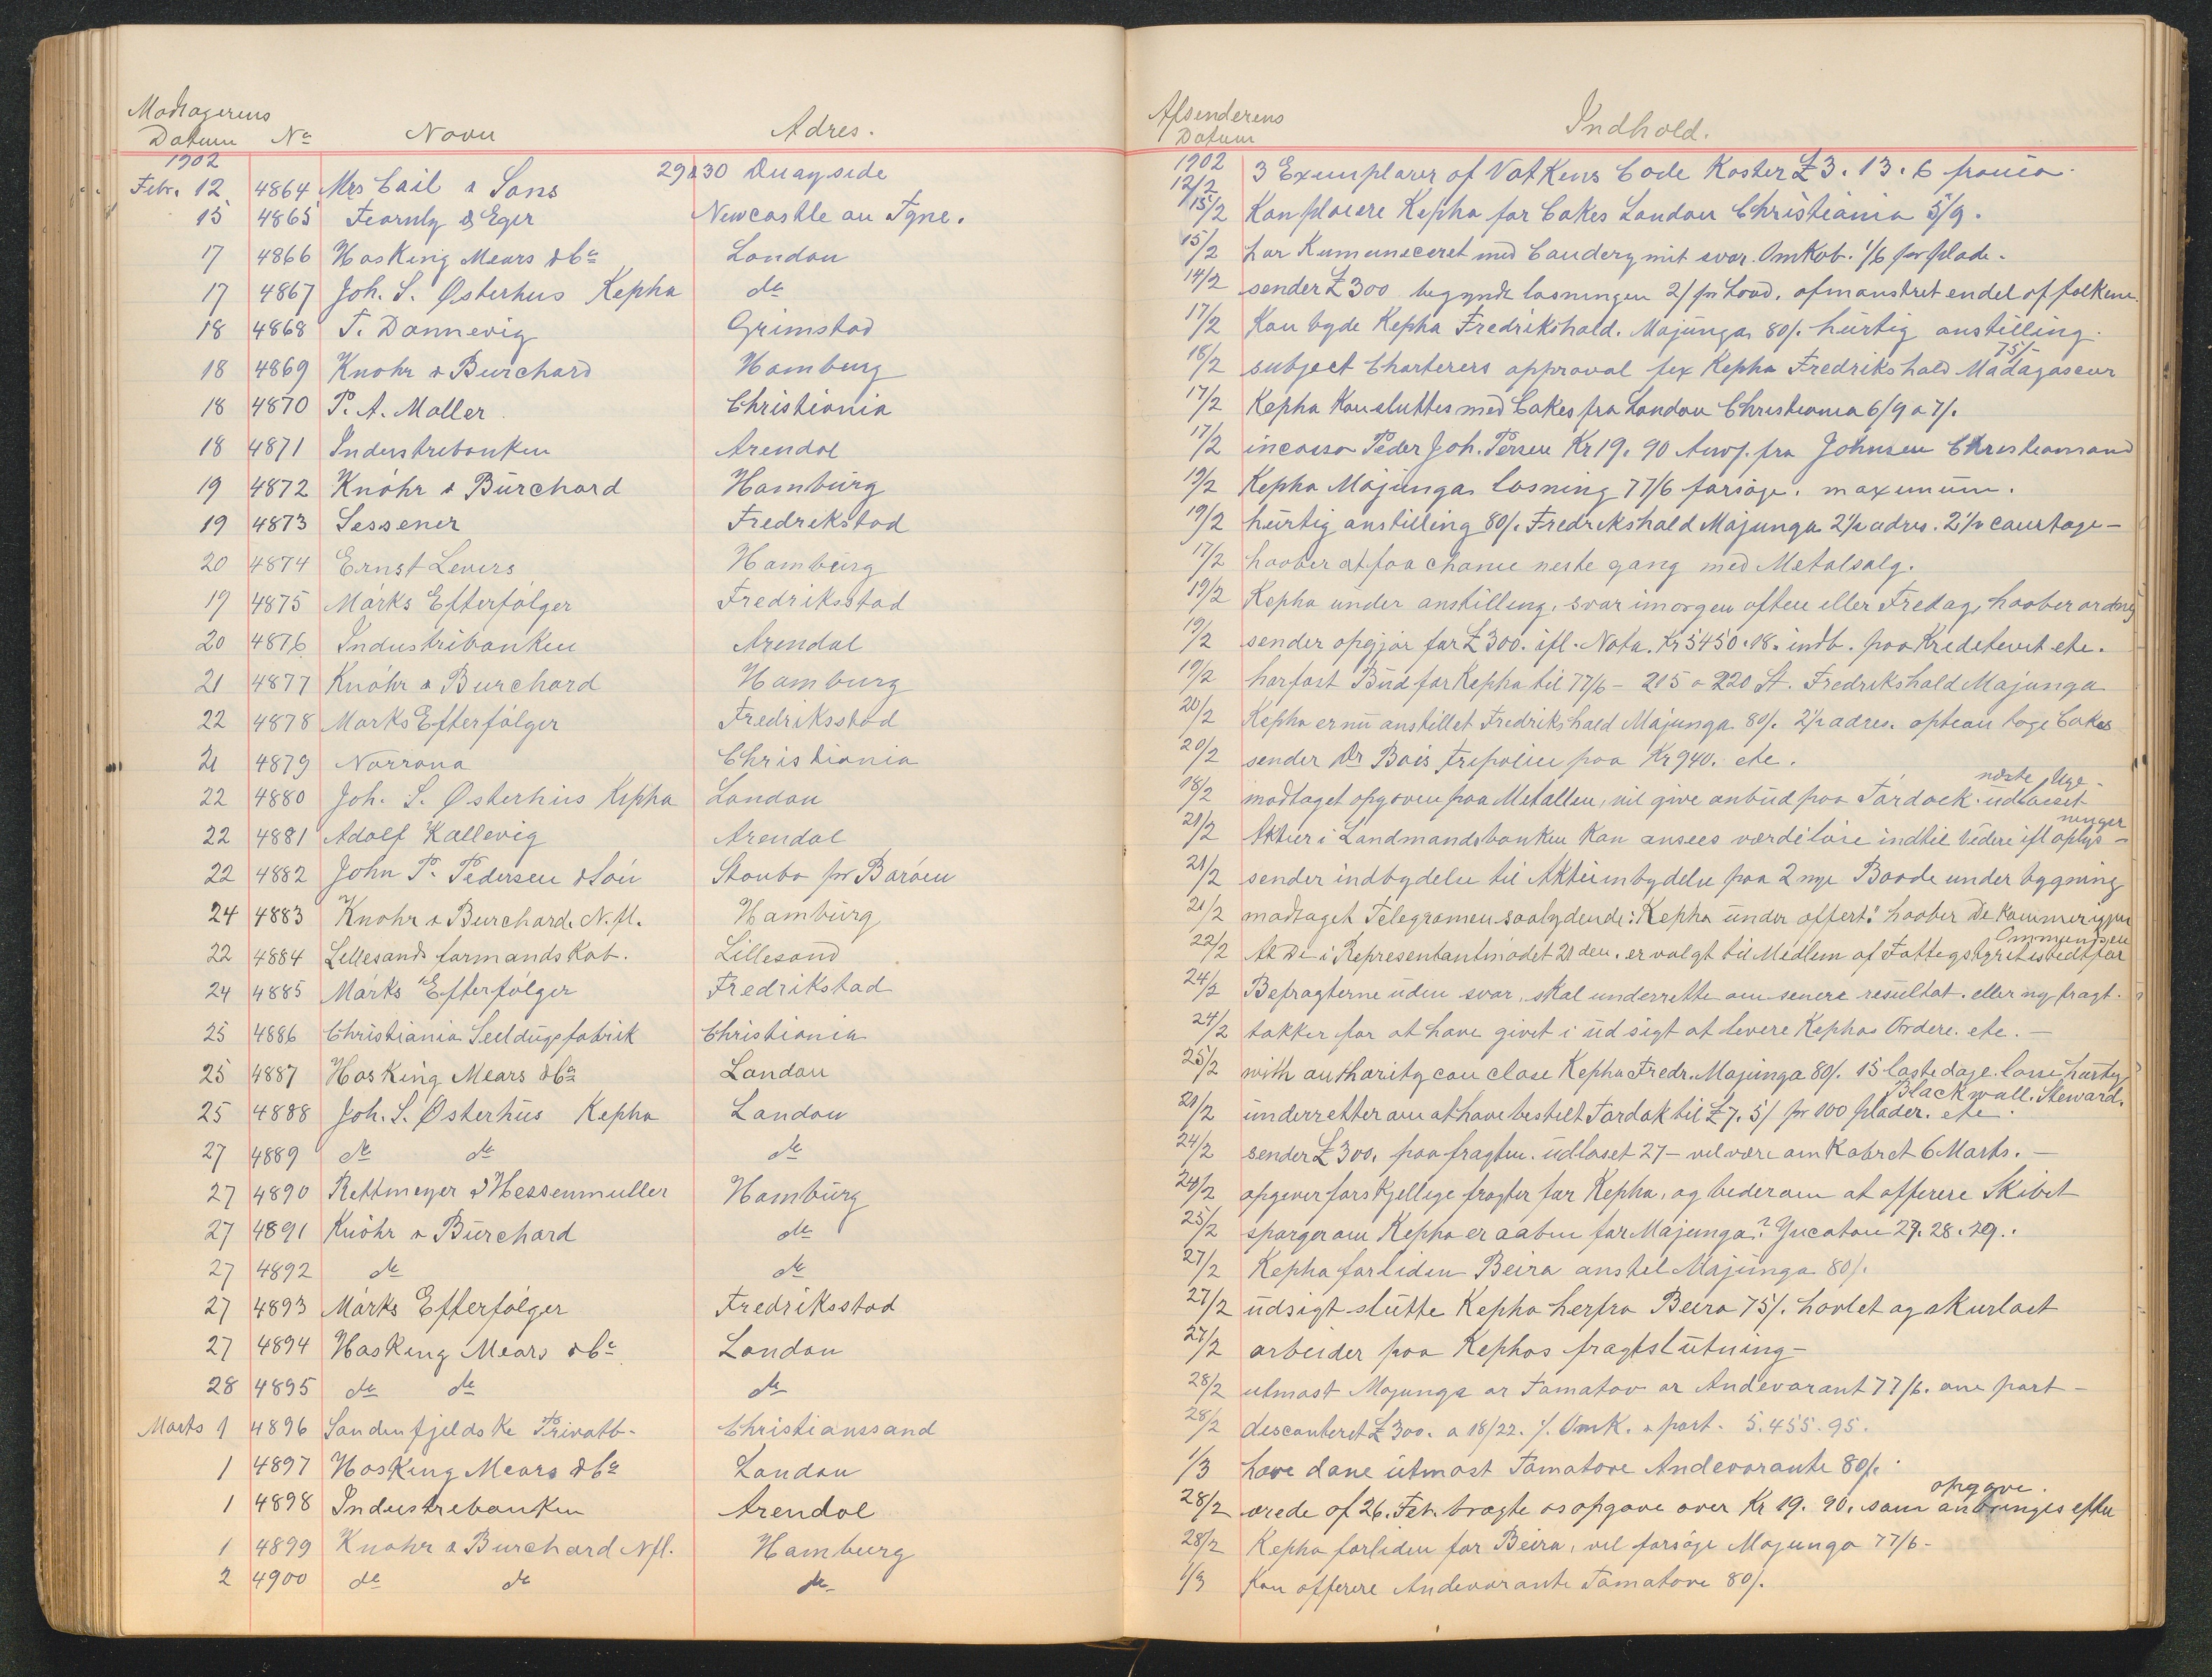 Modtagerens
Datum No Navn Adres.
1902
Febr. 12 4864 Mrs Cail & Sons 29 & 30 Quayside
15 4865 Fearnly & Eger Newcastle on Tyne.
17 4866 Hosking Mears & Co London
17 4867 Joh. S. Østerhus Kepha do
18 4868 T. Dannevig Grimstad
18 4869 Knöhr & Burchard Hamburg
18 4870 P. A. Møller Christiania
18 4871 Industribanken Arendal
19 4872 Knöhr & Burchard Hamburg
19 4873 Sessener Fredrikstad
20 4874 Ernst Levers Hamburg
19 4875 Märks Efterfølger Fredriksstad
20 4876 Industribanken Arendal
21 4877 Knöhr & Burchard Hamburg
22 4878 Marks Efterfølger Fredriksstad
21 4879 Norrøna Christiania
22 4880 Joh. S. Østerhus Kepha London
22 4881 Adolf Kallevig Arendal
22 4882 John P. Pedersen & Søn Staubø pr Barøen
24 4883 Knöhr & Burchard. N.fl. Hamburg
22 4884 Lillesands formandskab. Lillesand
24 4885 Märks Efterfølger Fredrikstad
25 4886 Christiania Seildugsfabrik Christiania
25 4887 Hosking Mears & Co London
25 4888 Joh. S. Østerhus Kepha London
27 4889 do do do
27 4890 Rettmeyer & Hessenmuller Hamburg
27 4891 Knöhr & Burchard do
27 4892 do do
27 4893 Märks Efterfølger Fredriksstad
27 4894 Hosking Mears & Co London
28 4895 do do do
Marts 1 4896 Søndenfjeldske Privatb. Christianssand
1 4897 Hosking Mears & Co London
1 4898 Industribanken Arendal
1 4899 Knöhr & Burchard Nfl. Hamburg
2 4900 do do do
Afsenderens
Datum Indhold.
1902
12/2 3 Exemplarer af Vatkins Code Koster £3.13.6 franco.
15/2 Kan placere Kepha for Cokes London Christiania 5/9.
15/2 har Kummuniceret med mit svar. Omkob. 1/6 pr plade.
14/2 sender £300 begyndt losningen 2/ pr Load. afmønstret endel af folkene
17/2 Kan byde Kepha Fredrikshald. Majunga 80/. hurtig anstilling.
18/2 subject Charterers approval fix Kepha Fredrikshald Madagascar 75/-
17/2 Kepha Kan sluttes med Cokes fra London Christiania 6/9 a 7/.
17/2 incasso Peder Joh. Persen Kr 19.90 Anv. fra Johnsen Christiansand
19/2 Kepha Majunga losning 77/6 forsøge. maximum.
19/2 hurtig anstilling 80/. Fredrikshald Majunga 2½ adres. 2½ courtage-
17/2 haaber at faa chance neste gang med Metalsalg.
19/2 Kepha under anstilling, svar imorgen aften eller Fredag, haaber ordne
19/2 sender opgjør for £300. ifl. Nota. Kr 5450.18. indb. paa Kreditevit etc.
19/2 har fast Bud for Kepha til 77/6 - 215 a 220 St. Fredrikshald Majunga
20/2 Kepha er nu anstillet Fredrikshald Majunga 80/. 2½ adres. option tage Cokes
20/2 sender Dr Bois Tripolier paa Kr 940. etc.
18/2 modtaget opgaven paa Metallen, vil give anbud paa Tørdock. udlosset næste Uge-
21/2 Aktier i Landmandsbanken Kan ansees værdiløse indtil videre ifl oplys-
ninger
21/2 sender indbydelse til Aktieinbydelse paa 2 nye Baade under bygning
21/2 modtaget Telegramen saalydende: "Kepha under offert." haaber De Kommer igjen
22/2 At De i Representantmødet 21 den. er valgt til Medlem af Fattigstyret istedtfor Ommundsen
24/2 Befragterne uden svar, skal underrette om senere resultat. eller ny fragt.
24/2 takker for at have givet i udsigt at levere Kephas Ordere. etc. -
25/2 with authority can close Kepha Fredr. Majunga 80/. 15 lastedage. losse hurtig
21/2 underretter om at have bestilt Tørdok til £7.5/ pr 100 plader. etc. Blackwall. Steward.
24/2 sender £300. paa fragten. udlosset 27 - vil være om Kobret 6 Marts. -
24/2 opgiver forskjellige fragter for Kepha, og beder om at offerere Skibet
25/2 spørger om Kepha er aaben for Majunga? Yucatan 27. 28. 29..
27/2 Kepha forliden Beira anstel Majunga 80/.
27/2 udsigt slutte Kepha herfra Beira 75/. høvlet og skurlast
27/2 arbeider paa Kephas fragtslutning-
28/2 utmost Majunga or Tamatav or Andevorant 77/6. one port -
28/2 disconteret £300. a 18/22. /. Omk. & port. 5.455.95.
1/3 have done utmost Tamatave Andevorante 80/.
28/2 ærede af 26. Feb. bragte os opgave over Kr 19.90. som anbringes efter opgave.
28/2 Kepha forliden for Beira, vil forsøge Majunga 77/6-
1/3 Kan offerere Andevorante Tamatave 80/.